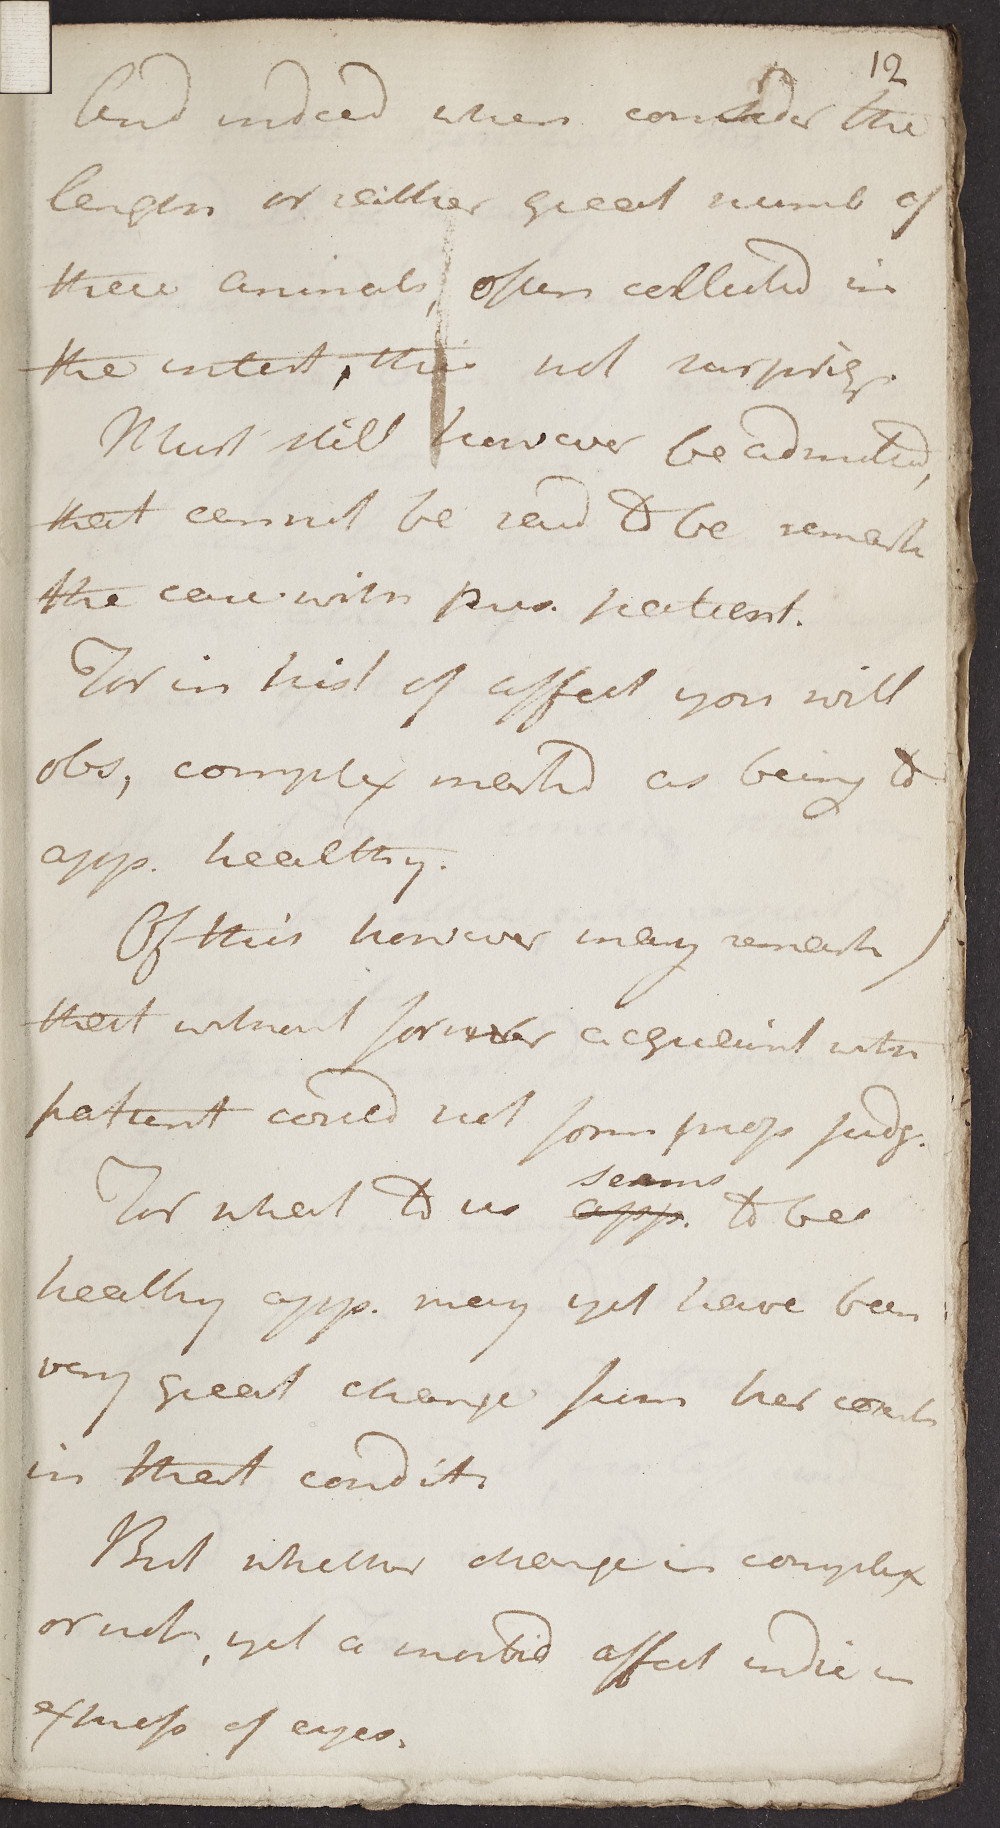 12
And indeed when consider the
length or either great numb of
these animals, often collected in
the intest, this not surprisg.
Must still however be admitted,
that cannot be said to be remark
the case with pres. patient.
For in hist of affect you will
obs, complex markd as being to
app. healthy.
Of this however may remark
that without former acquaint with
patient could not form prop judg.
seems
For what to us app. to be a
healthy app. may yet have been
very great change from her count
in that condit
But whether change in complex
or not, yet a morbid affect indic in
express of eyes.